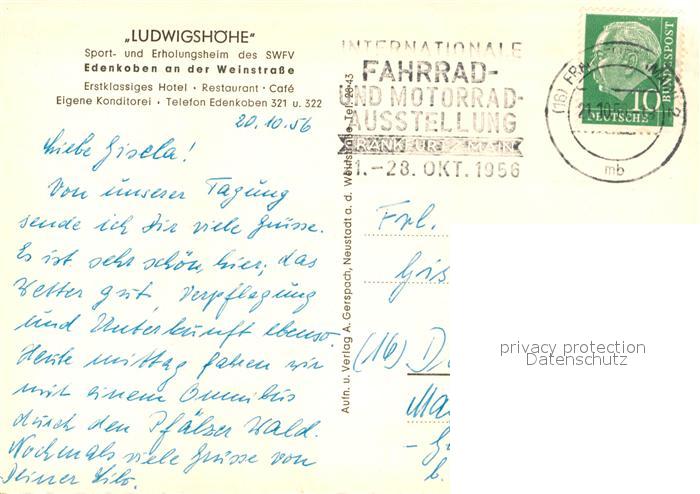 „LUDWIGSHÖHE"
Sport- und Erholungsheim des SWFV
Edenkoben an der Weinstraße
Erstklassiges Hotel · Restaurant · Café
Eigene Konditorei · Telefon Edenkoben 321 u. 322
20.10.56
Liebe Gisela!
Von unserer Tagung
sende ich Dir viele Grüsse.
Es ist sehr schön hier, das
Wetter gut, Verpflegung
und Unterkunft ebenso.
Heute mittag fahren wir
mit einem Omnibus
durch den Pfälzer Wald.
Nochmals viele Grüsse von
Deiner
Aufn. u. Verlag A. Gerspach, Neustadt a. d. Weinstraße, Tel. 28 43
INTERNATIONALE
FAHRRAD-
UND MOTORRAD-
AUSSTELLUNG
FRANKFURT MAIN
1.-28. OKT. 1956
(16)
21.10.5
mb
10
DEUTSCHE
BUNDESPOST
Frl.
Gis
(16) D
Ma
privacy protection
Datenschutz